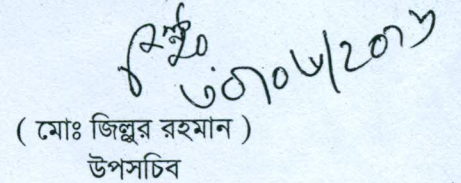 ৩০/০৬/২০১৬
( মোঃ জিল্লুর রহমান )
উপসচিব